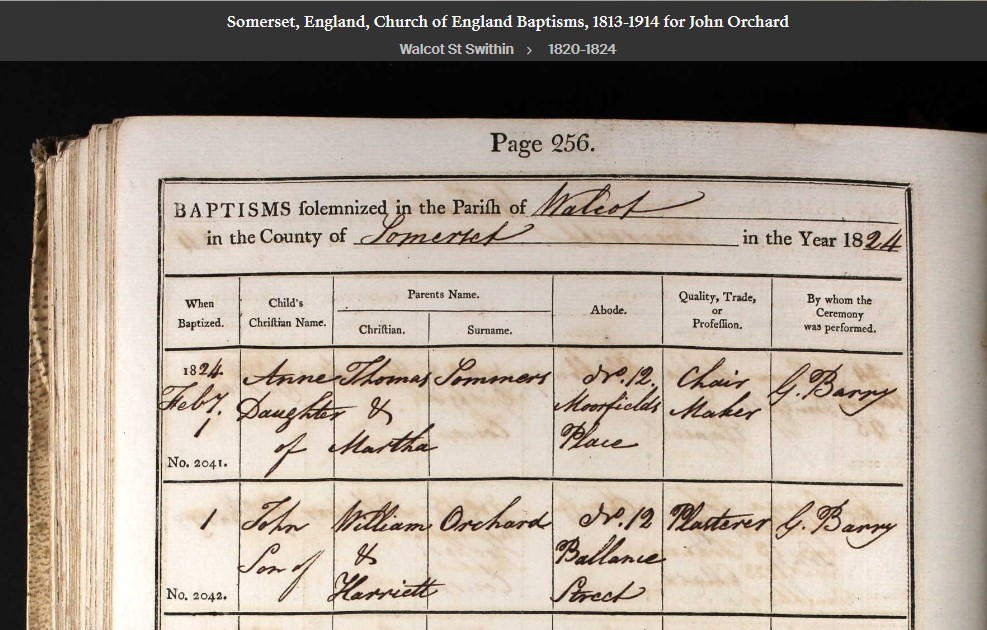 Somerset, England, Church of England Baptisms, 1813-1914 for John Orchard
Walcot St Swithin > 1820-1824
Page 256.
BAPTISMS ſolemnized in the Pariſh of Walcot
in the County of Somerset in the Year 1824
When Baptized. Child's Chriſtian Name. Parents Name. Chriſtian. Surname. Abode. Quality, Trade, or Profeſſion. By whom the Ceremony was performed.
1824. Anne Thomas Sommers No. 12. Chair G. Barry
Feby. Daughter & Moorfields Maker
1 of Martha Place
No. 2041.
1 John William Orchard No. 12 Plasterer G. Barry
Son of & Ballance
No. 2042. Harriett Street